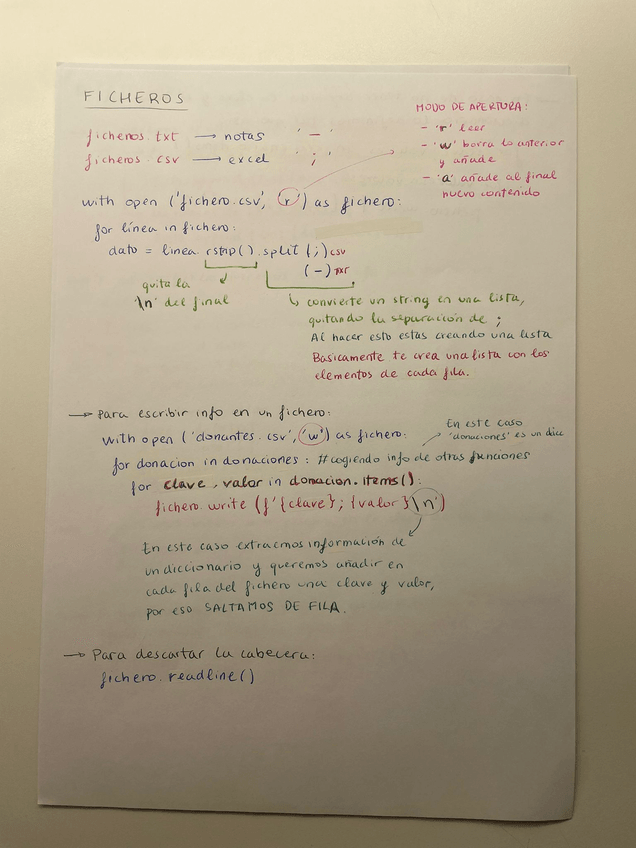 FICHEROS
ficheros.txt → notas '-'
ficheros.csv → excel ';'
MODO DE APERTURA:
- 'r' leer
- 'w' borra lo anterior
y añade
- 'a' añade al final
nuevo contenido
with open ('fichero.csv', 'r') as fichero:
for línea in fichero:
dato = linea.rstrip().split(;) csv
(-) txt
quita la
'\n' del final
↳ convierte un string en una lista,
quitando la separación de ;
Al hacer esto estás creando una lista
Basicamente te crea una lista con los
elementos de cada fila.
→ Para escribir info en un fichero:
with open ('donantes.csv', 'w') as fichero:
En este caso
'donaciones' es un dicc
for donacion in donaciones: #cogiendo info de otras funciones
for clave, valor in donacion.items():
fichero.write (f'{clave}; {valor}\n')
En este caso extraemos información de
un diccionario y queremos añadir en
cada fila del fichero una clave y valor,
por eso SALTAMOS DE FILA.
→ Para descartar la cabecera:
fichero.readline()